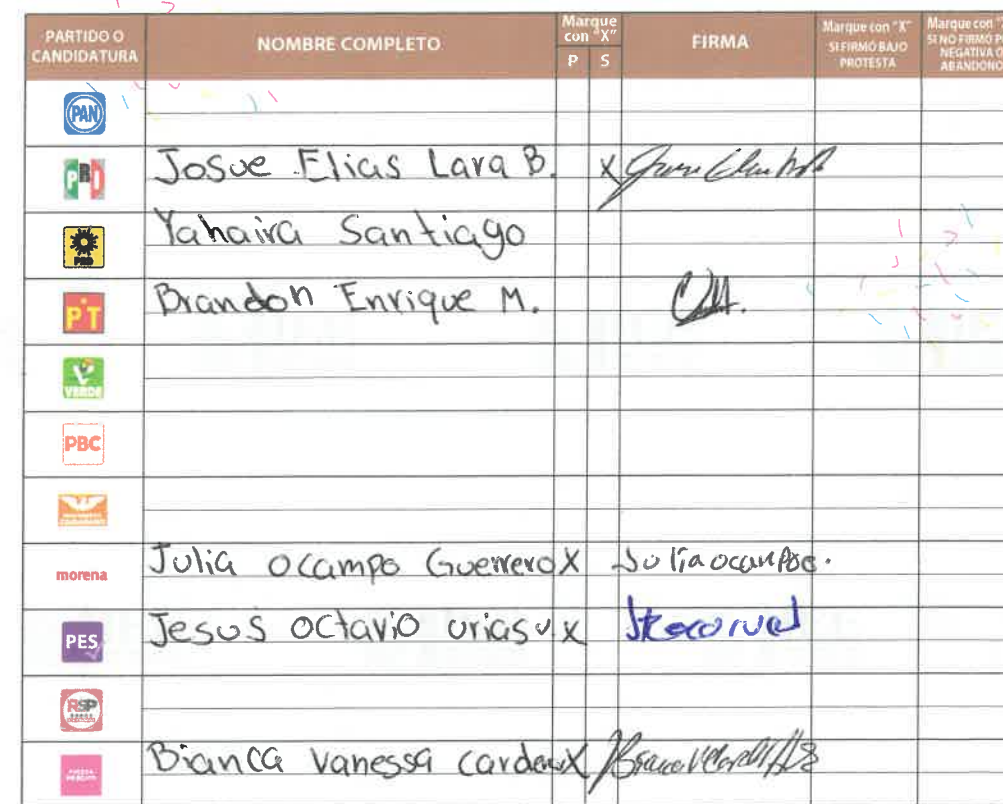 PARTIDO O CANDIDATURA
NOMBRE COMPLETO
Marque con "X"
P S
FIRMA
Marque con "X" SI FIRMÓ BAJO PROTESTA
Marque con SI NO FIRMÓ NEGATIVA ABANDONO
PAN
PRI Josue Elias Lara B. X
PRD Yahaira Santiago
PT Brandon Enrique M.
VERDE
PBC
morena Julia Ocampo Guerrero X Julia ocampo.
PES Jesus Octavio urias v X
RSP
Bianca Vanessa carden X